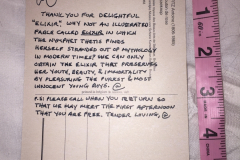 THANK YOU FOR DELIGHTFUL
"ELIXIR". WHY NOT AN ILLUSTRATED
FABLE CALLED ELIXIR IN WHICH
THE NYMPHET THETIS FINDS
HERSELF STRANDED OUT OF MYTHOLOGY
IN MODERN TIMES? SHE CAN ONLY
OBTAIN THE ELIXIR THAT PRESERVES
HER YOUTH, BEAUTY, & IMMORTALITY
BY PLEASURING THE PUREST & MOST
INNOCENT YOUNG BOYS.
P.S. PLEASE CALL WHEN YOU RETURN SO
THAT WE MAY MEET THE FIRST AFTERNOON
THAT YOU ARE FREE. TENDER LOVING,
1
2
3
4